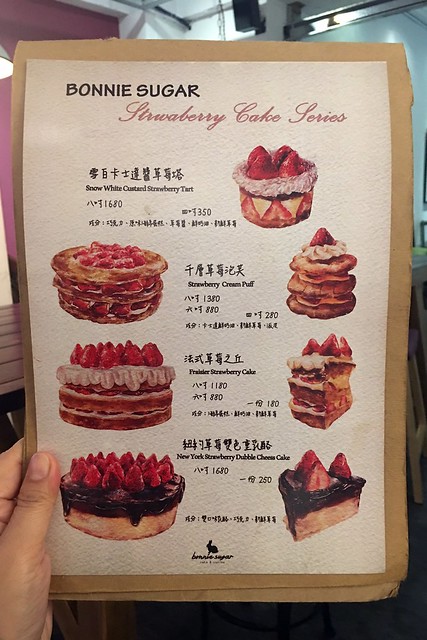 BONNIE SUGAR
Strwaberry Cake Series
雪白卡士達醬草莓塔
Snow White Custard Strawberry Tart
八吋1680
四吋350
成份：巧克力、原味海綿蛋糕、草莓醬、鮮奶油、新鮮草莓
千層草莓泡芙
Strawberry Cream Puff
八吋 1380
六吋 880
四吋 280
成份：卡士達鮮奶油、新鮮草莓、派皮
法式草莓之丘
Fraisier Strawberry Cake
八吋 1180
六吋 880
一份 180
成份：海綿蛋糕、鮮奶油、新鮮草莓
紐約草莓雙色重乳酪
New York Strawberry Dubble Cheess Cake
八吋 1680
一份 250
成份：雙口味乳酪、巧克力、新鮮草莓
bonnie sugar